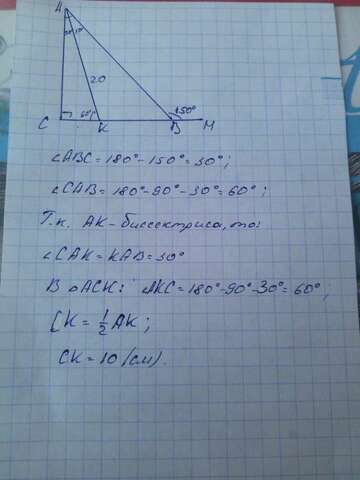 A
30° 30°
20
150°
60°
C K B M
∠ABC = 180° - 150° = 30°;
∠CAB = 180° - 90° - 30° = 60°;
Т.к. АК - биссектриса, то:
∠CAK = KAB = 30°
В △ACK: ∠AKC = 180° - 90° - 30° = 60°;
CK = 1/2 AK;
CK = 10 (см).